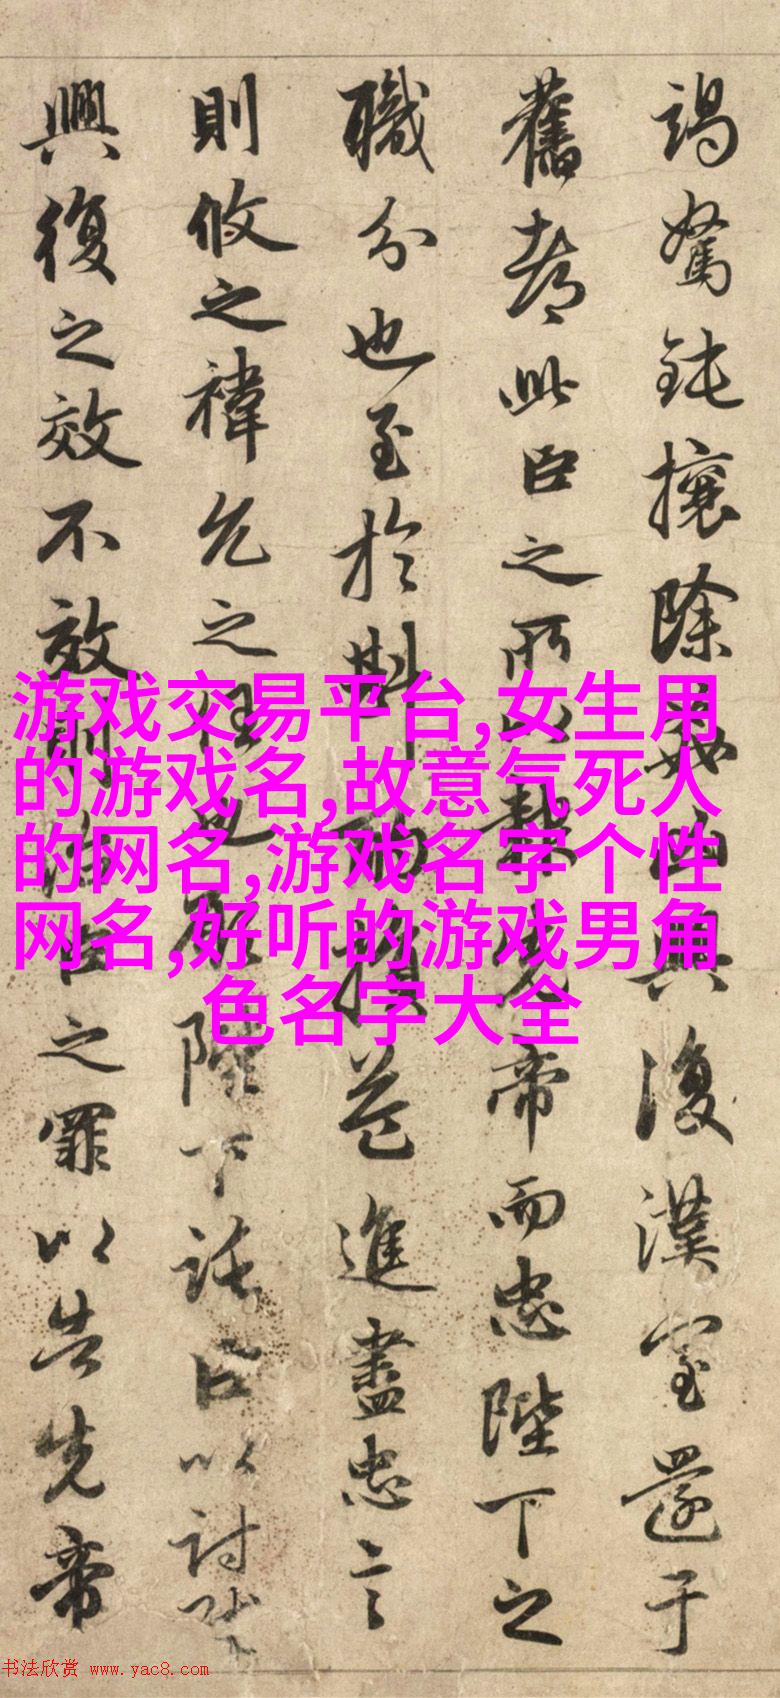 竭駑鈍攘除姦凶興復漢室還于
舊都此臣之所以報先帝而忠陛下之
職分也至於斟損益進盡忠言
則攸之禕允之任也願陛下託臣以討賊
興復之效不效則治臣之罪以告先帝
游戏交易平台,女生用
的游戏名,故意气死人
的网名,游戏名字个性
网名,好听的游戏男角
色名字大全
书法欣赏 www.yac8.com